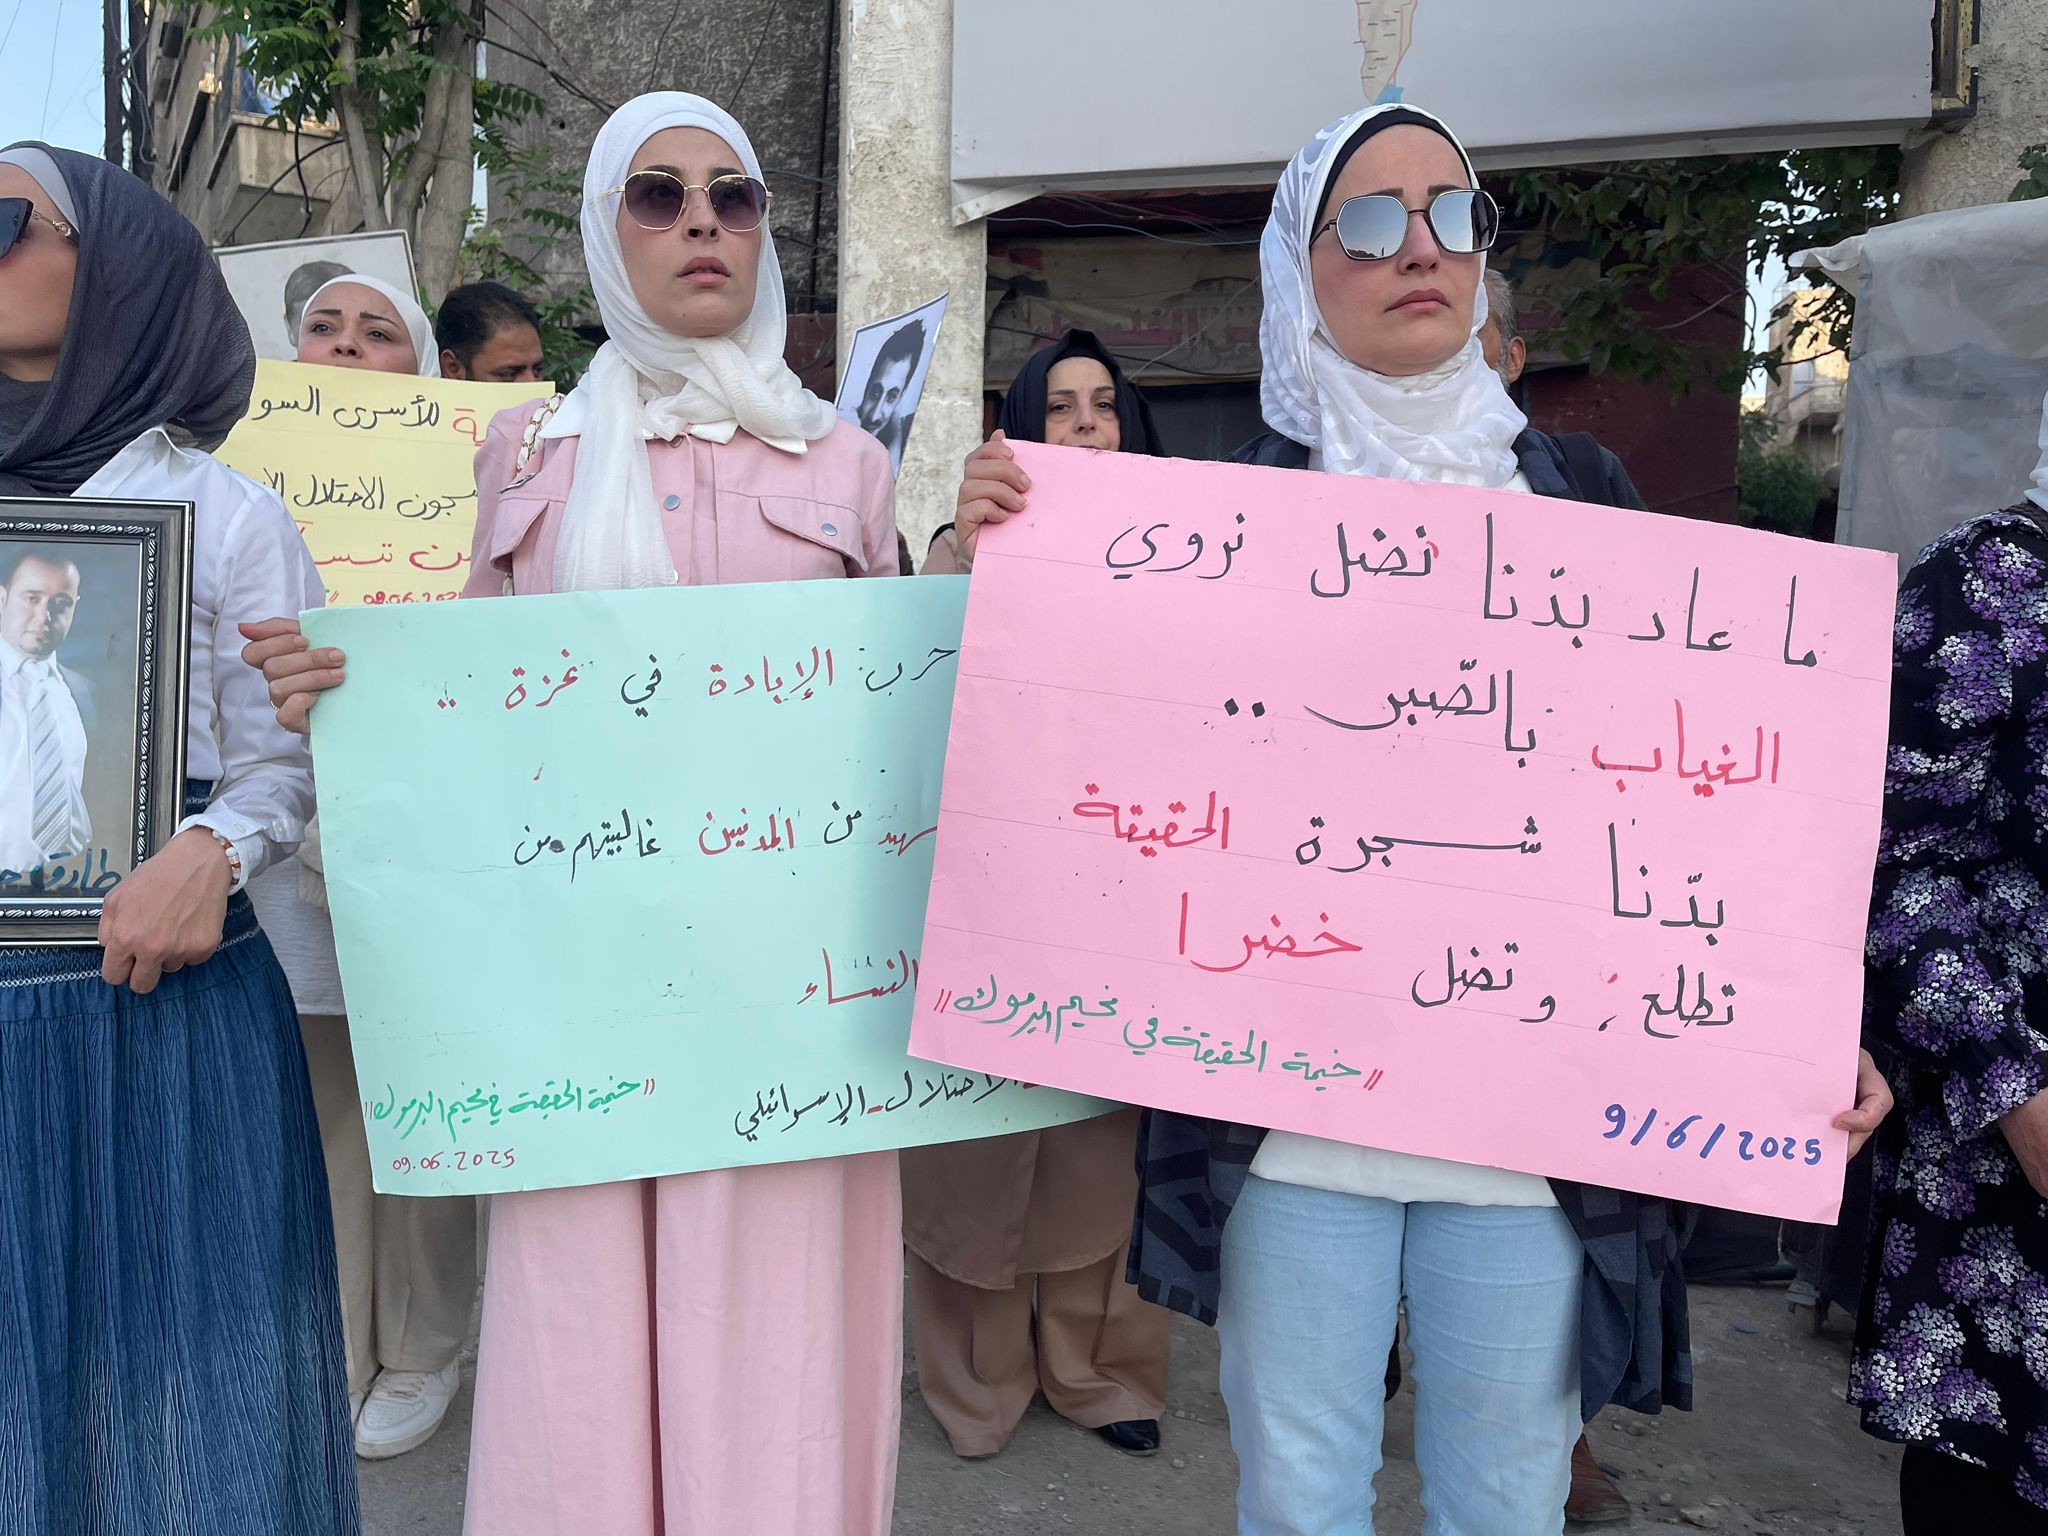 ية للأسرى السور
سجون الاحتلال الا
09.06.2025
طارق
حرب الإبادة في غزة ..
من المدنيين غالبيتهم من
النساء
الاحتلال - الإسرائيلي
"خيمة الحقيقة في مخيم اليرموك"
09.06.2025
ما عاد بدّنا نضل نروي
الغياب بالصّبر ..
بدّنا شجرة الحقيقة
تطلع، وتضل خضرا
"خيمة الحقيقة في مخيم اليرموك"
9/6/2025